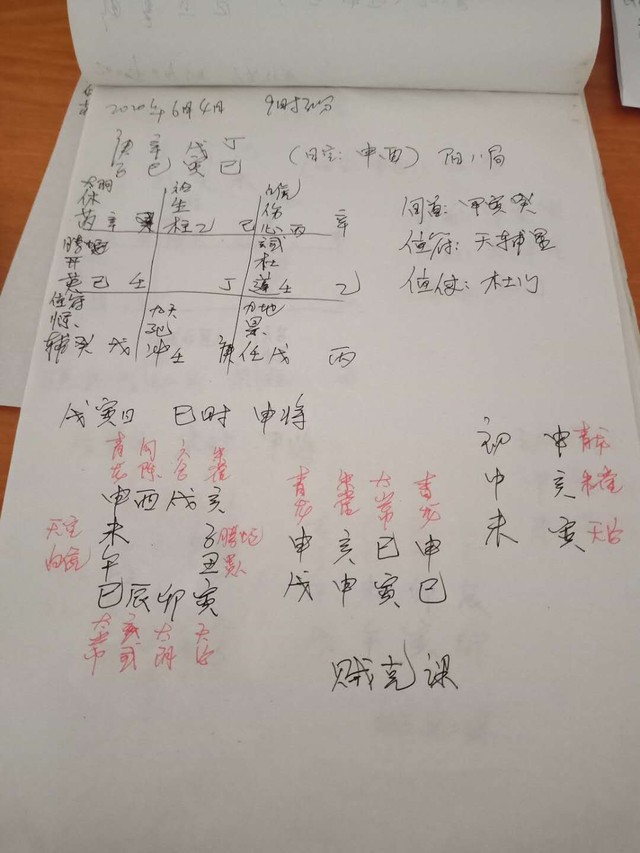 2020年6月4日 9时
庚 辛 戊 丁
子 巳 寅 巳 (日空:申、酉) 阳八局
太阴 六合 白虎
休 生 伤
芮 辛 癸 柱 乙 己 心 丙 辛
螣蛇 玄武
开 杜
英 己 壬 丁 蓬 壬 乙
值符 九天 九地
惊、死 景、
辅 癸 戊 冲 壬 庚 任 戊 丙
旬首:甲寅癸
值符:天辅星
值使:杜门
戊寅日 巳时 申将
青龙 勾陈 六合 朱雀
申 酉 戌 亥
天空 未 子 螣蛇
白虎 午 丑 贵人
巳 辰 卯 寅
太常 玄武 太阴 天后
青龙 朱雀 太常 青龙
申 亥 巳 申
戊 申 寅 巳
初 申 青龙
中 亥 朱雀
末 寅 天后
贼克课